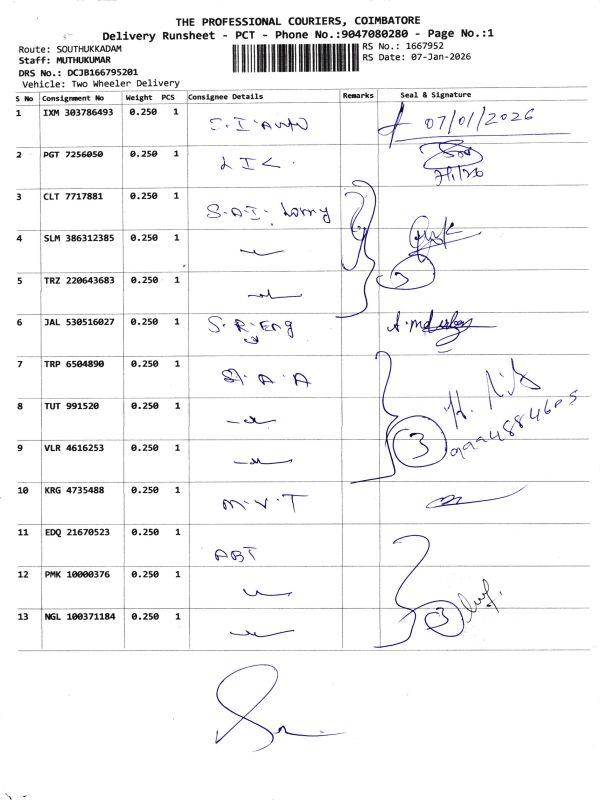 THE PROFESSIONAL COURIERS, COIMBATORE
Delivery Runsheet - PCT - Phone No.:9047080280 - Page No.:1
Route: SOUTHUKKADAM
Staff: MUTHUKUMAR
DRS No.: DCJB166795201
Vehicle: Two Wheeler Delivery
RS No.: 1667952
RS Date: 07-Jan-2026
S No Consignment No Weight PCS Consignee Details Remarks Seal & Signature
1 IXM 303786493 0.250 1 S.I. Auto 07/01/2026
2 PGT 7256050 0.250 1 LIC
3 CLT 7717881 0.250 1 S.A.I. Lorry
4 SLM 386312385 0.250 1
5 TRZ 220643683 0.250 1 3
6 JAL 530516027 0.250 1 S.R.Eng
7 TRP 6504890 0.250 1 A.A
8 TUT 991520 0.250 1
9 VLR 4616253 0.250 1 3
10 KRG 4735488 0.250 1 M.V.T
11 EDQ 21670523 0.250 1 ABT
12 PMK 10000376 0.250 1
13 NGL 100371184 0.250 1 3